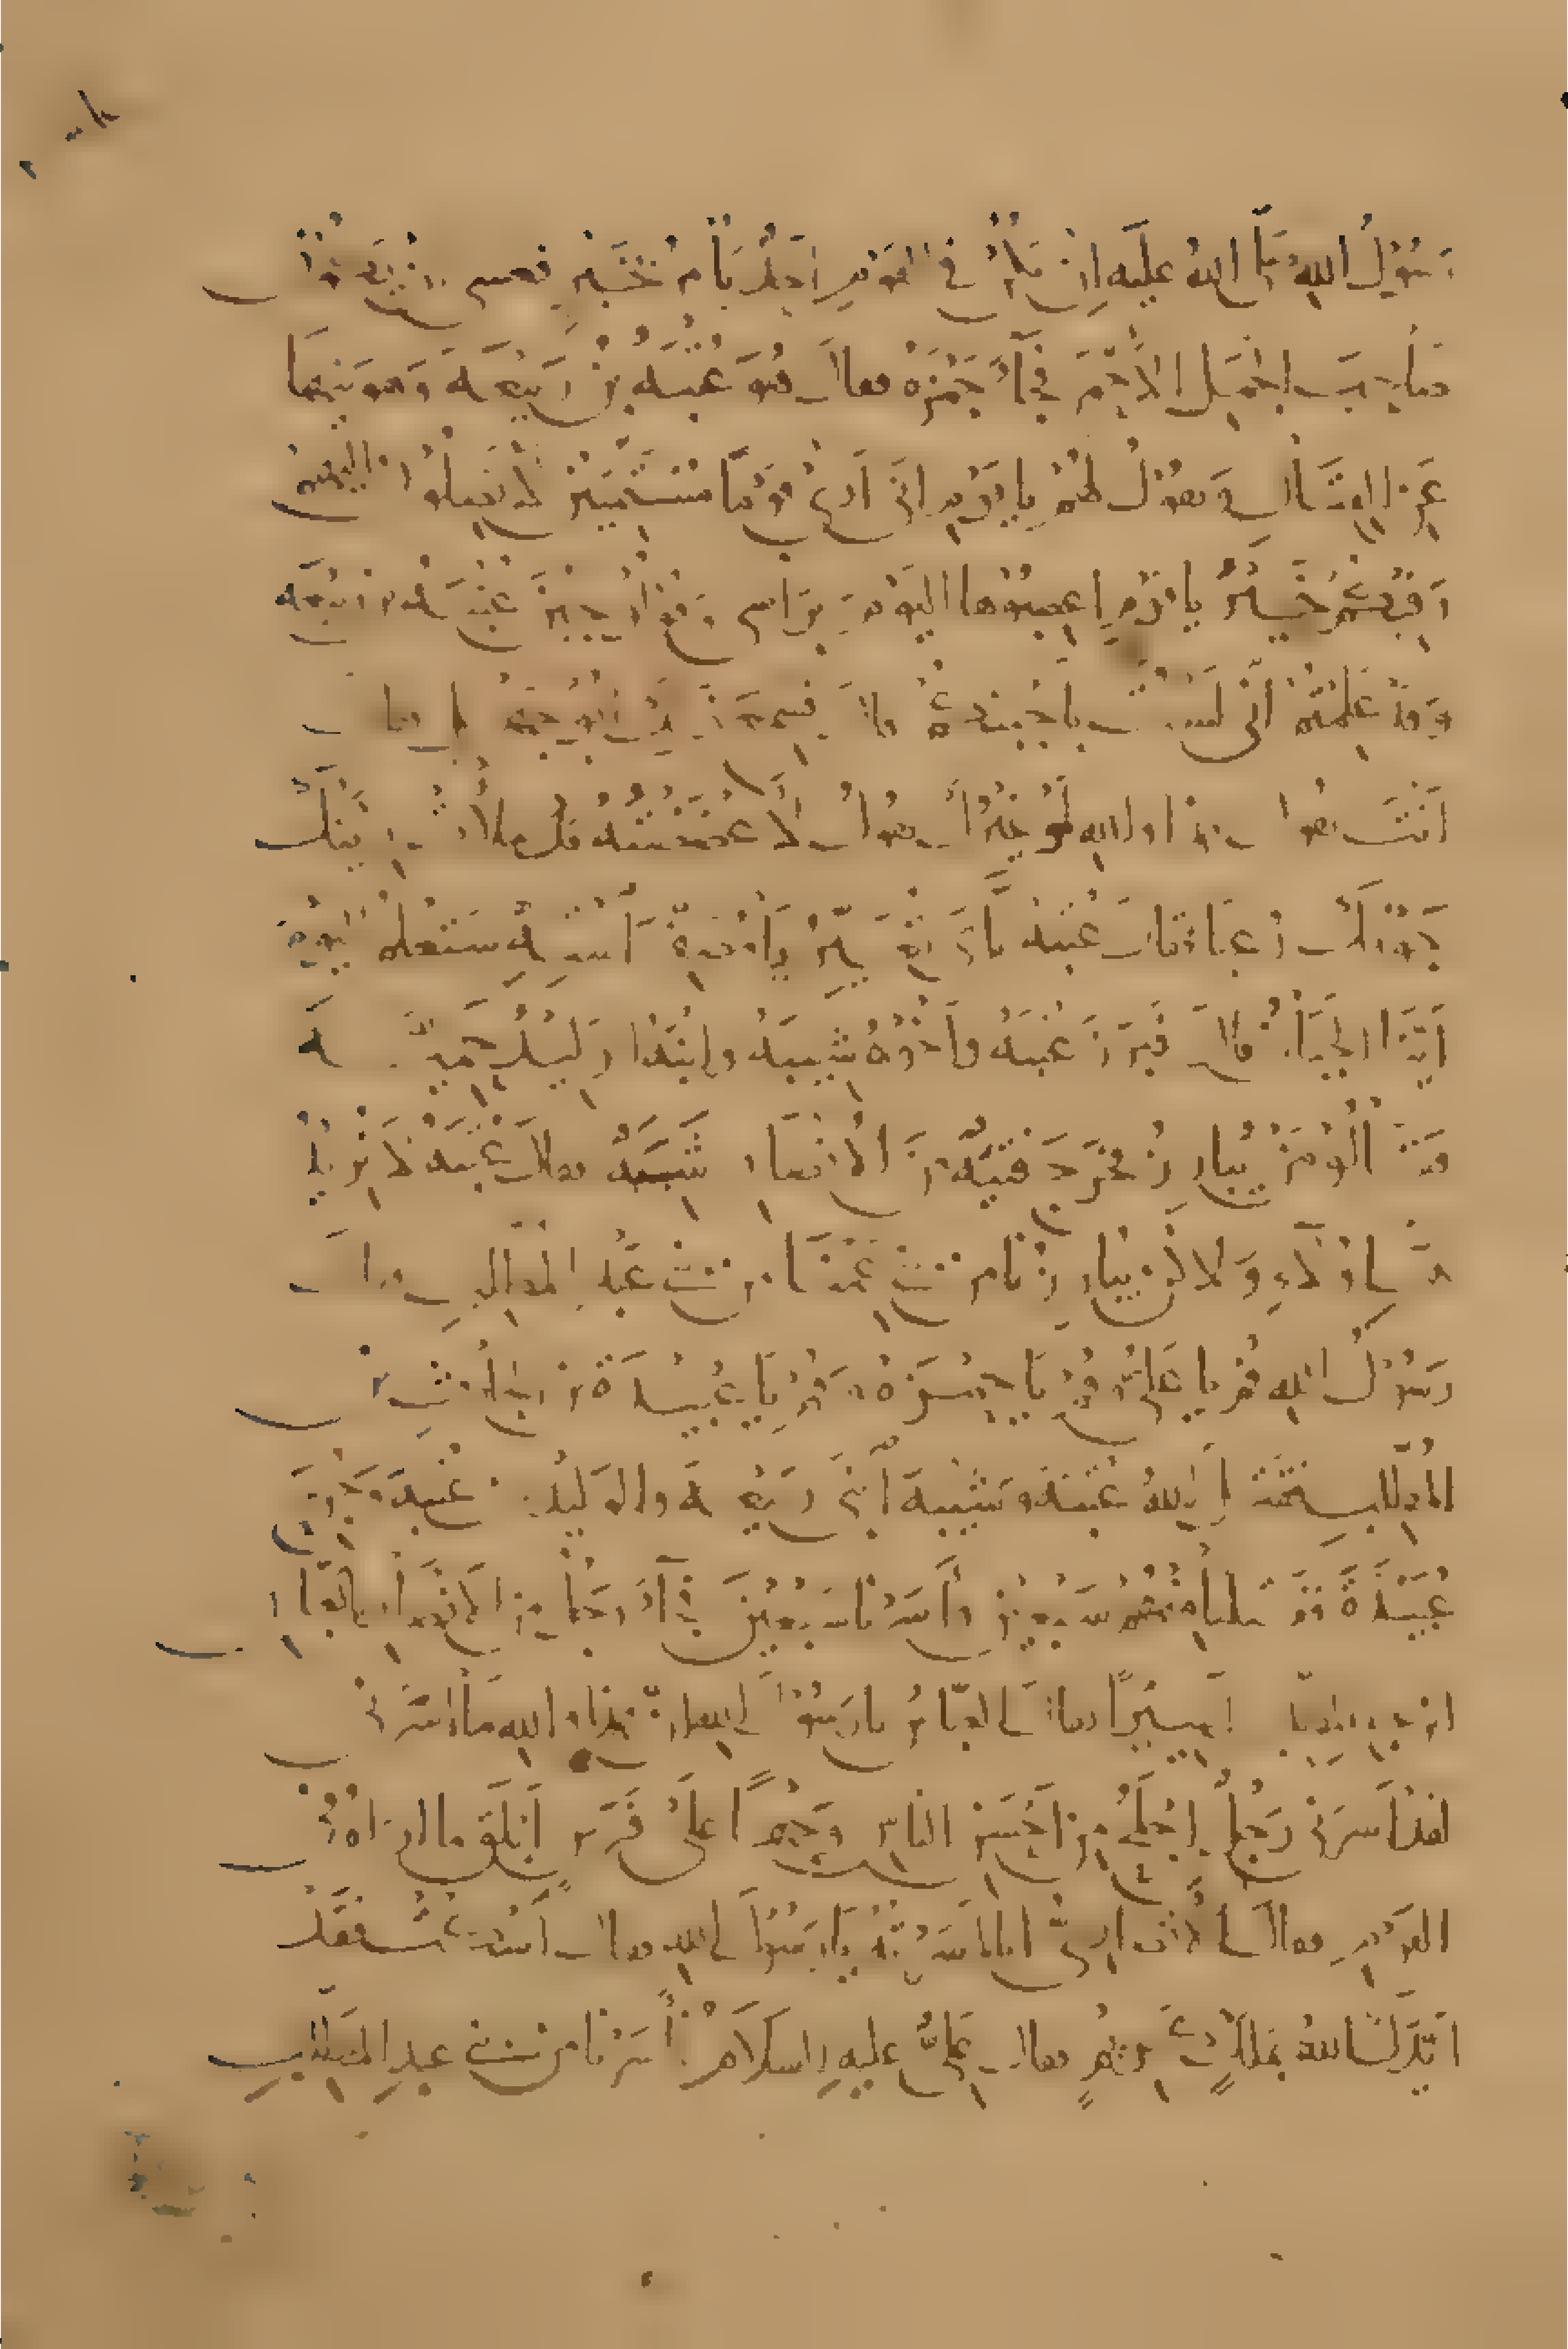 رسول الله صلى الله عليه ان يك في القوم احد يأمر بخير فعسى ان يكون
صاحب الجمل الاحمر فجاء حمزة فقال هو عتبة بن ربيعة وهو ينهى
عن القتال ويقول لهم يا قوم اني ارى قوما مستميتين لا تصلون اليهم
وفيكم خير يا قوم اعصبوها اليوم براسي وقولوا جبن عتبة بن ربيعة
وقد علمتم أني لست بأجبنكم قال فسمع ذلك ابو جهل فقال
انت تقول هذا والله لو غيرك يقول لأعضضته قد ملأت رئتك
جوفك رعبا فقال عتبة اياي تعير يا مصفر استه ستعلم اليوم
اينا الجبان قال فبرز عتبة وأخوه شيبة وابنه الوليد حمية
فقالوا من يبارز فخرج فتية من الانصار شببة فقال عتبة لا نريد
هاولاء ولاكن يبارزنا من بني عمنا من بني عبد المطلب فقال
رسول الله قم يا علي وقم يا حمزة وقم يا عبيدة بن الحارث بن
المطلب فقتل الله عتبة وشيبة ابني ربيعة والوليد بن عتبة وجرح
عبيدة فقتلنا منهم سبعين وأسرنا سبعين فجاء رجل من الانصار بالعباس
اسيرا فقال العباس يا رسول الله ان هذا والله ما اسرني
لقد أسرني رجل اجلح من احسن الناس وجها على فرس ابلق ما اراه في
القوم فقال الأنصاري انا أسرته يا رسول الله فقال اسكت فقد
ايدك الله بملك كريم فقال علي عليه السلام فأسرنا من بني عبد المطلب